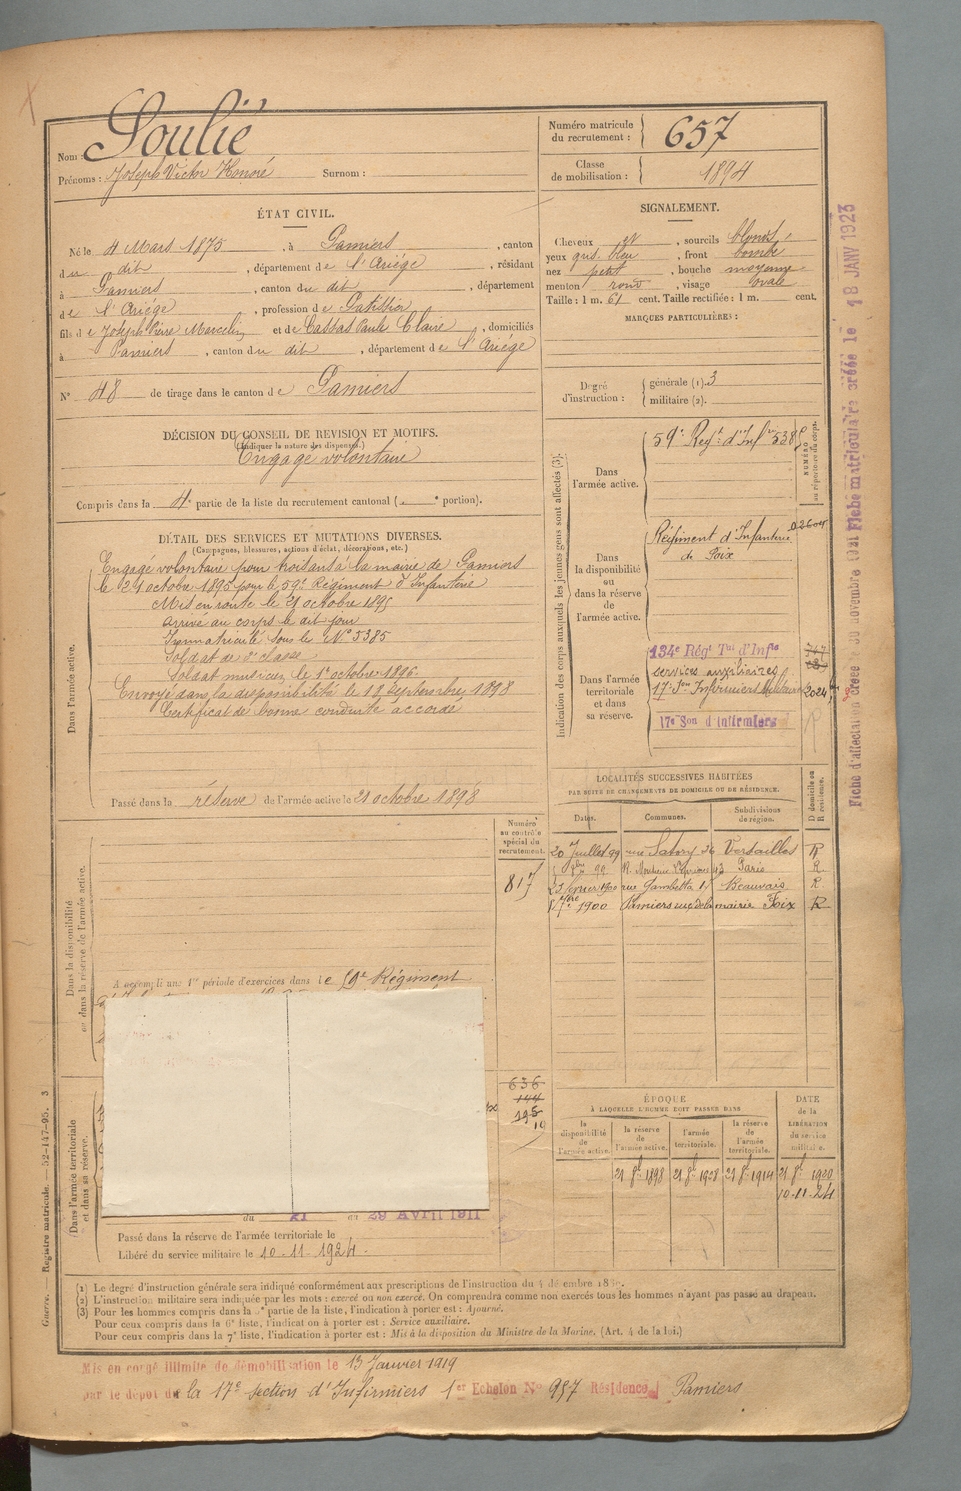 Nom : Soulié
Prénoms : Joseph Victor Honoré Surnom :
Numéro matricule du recrutement : 657
Classe de mobilisation : 1894
ÉTAT CIVIL.
Né le 4 Mars 1875, à Pamiers, canton
du dit, département de l'Ariège, résidant
à Pamiers, canton du dit, département
de l'Ariège, profession de Patissier
fils de Joseph Pierre Marcelin et de Cassas Paule Claire, domiciliés
à Pamiers, canton du dit, département de l'Ariège
N° 48 de tirage dans le canton de Pamiers
SIGNALEMENT.
Cheveux et, sourcils blonds
yeux gris bleu, front bombé
nez petit, bouche moyenne
menton rond, visage ovale
Taille : 1 m. 61 cent. Taille rectifiée : 1 m. cent.
MARQUES PARTICULIÈRES :
Degré d'instruction : générale (1). 3
militaire (2).
DÉCISION DU CONSEIL DE REVISION ET MOTIFS.
(Indiquer la nature des dispenses.)
Engagé volontaire
Compris dans la 4e partie de la liste du recrutement cantonal ( e portion).
DÉTAIL DES SERVICES ET MUTATIONS DIVERSES.
(Campagnes, blessures, actions d'éclat, décorations, etc.)
Dans l'armée active.
Engagé volontaire pour trois ans à la mairie de Pamiers
le 21 octobre 1895 pour le 59e Régiment d'Infanterie
Mis en route le 21 octobre 1895
Arrivé au corps le dit jour
Immatriculé sous le N° 5385
Soldat de 2e classe
Soldat musicien le 1er octobre 1896.
Envoyé dans la disponibilité le 18 septembre 1898
Certificat de bonne conduite accordé
Passé dans la réserve de l'armée active le 21 octobre 1898
Indication des corps auxquels les jeunes gens sont affectés (3).
Dans l'armée active.
59e Regt d'Infie 5385
NUMÉRO au répertoire du corps.
Dans la disponibilité ou dans la réserve de l'armée active.
Régiment d'Infanterie 02604
de Foix
Dans l'armée territoriale et dans sa réserve.
134e Régt Tal d'Infie
services auxiliaires
17e Son Infirmiers Militaires 2024
17e Son d'Infirmiers
LOCALITÉS SUCCESSIVES HABITÉES
PAR SUITE DE CHANGEMENTS DE DOMICILE OU DE RÉSIDENCE.
Dates. Communes. Subdivisions de région. D domicile ou R résidence.
20 Juillet 99 rue Satory 36 Versailles R
99 R. 43 Paris R.
février 1900 rue Gambetta Beauvais R.
1900 Pamiers rue de la mairie Foix R
Dans la disponibilité ou dans la réserve de l'armée active.
Numéro au contrôle spécial du recrutement.
817
A accompli une 1re période d'exercices dans le 59e Régiment
Dans l'armée territoriale et dans sa réserve.
636
144
195
19
du 21 au 29 Avril 1911
Passé dans la réserve de l'armée territoriale le
Libéré du service militaire le 10.11.1924.
ÉPOQUE
À LAQUELLE L'HOMME DOIT PASSER DANS
la disponibilité de l'armée active. la réserve de l'armée active. l'armée territoriale. la réserve de l'armée territoriale.
DATE de la LIBÉRATION du service militaire.
21 8e 1898 21 8e 1908 21 8e 1914 21 8e 1920
10-11-24
(1) Le degré d'instruction générale sera indiqué conformément aux prescriptions de l'instruction du 4 décembre 1889.
(2) L'instruction militaire sera indiquée par les mots : exercé ou non exercé. On comprendra comme non exercés tous les hommes n'ayant pas passé au drapeau.
(3) Pour les hommes compris dans la e partie de la liste, l'indication à porter est : Ajourné.
Pour ceux compris dans la 6e liste, l'indication à porter est : Service auxiliaire.
Pour ceux compris dans la 7e liste, l'indication à porter est : Mis à la disposition du Ministre de la Marine. (Art. 4 de la loi.)
Mis en congé illimité de démobilisation le 13 Janvier 1919
par le dépôt de la 17e section d'Infirmiers 1er Echelon N° 957 Résidence Pamiers
Guerre. — Registre matricule. — 52-147-95. 3
Fiche d'affectation créée le 30 novembre 1921 Fiche matriculaire créée le 18 JANV 1923